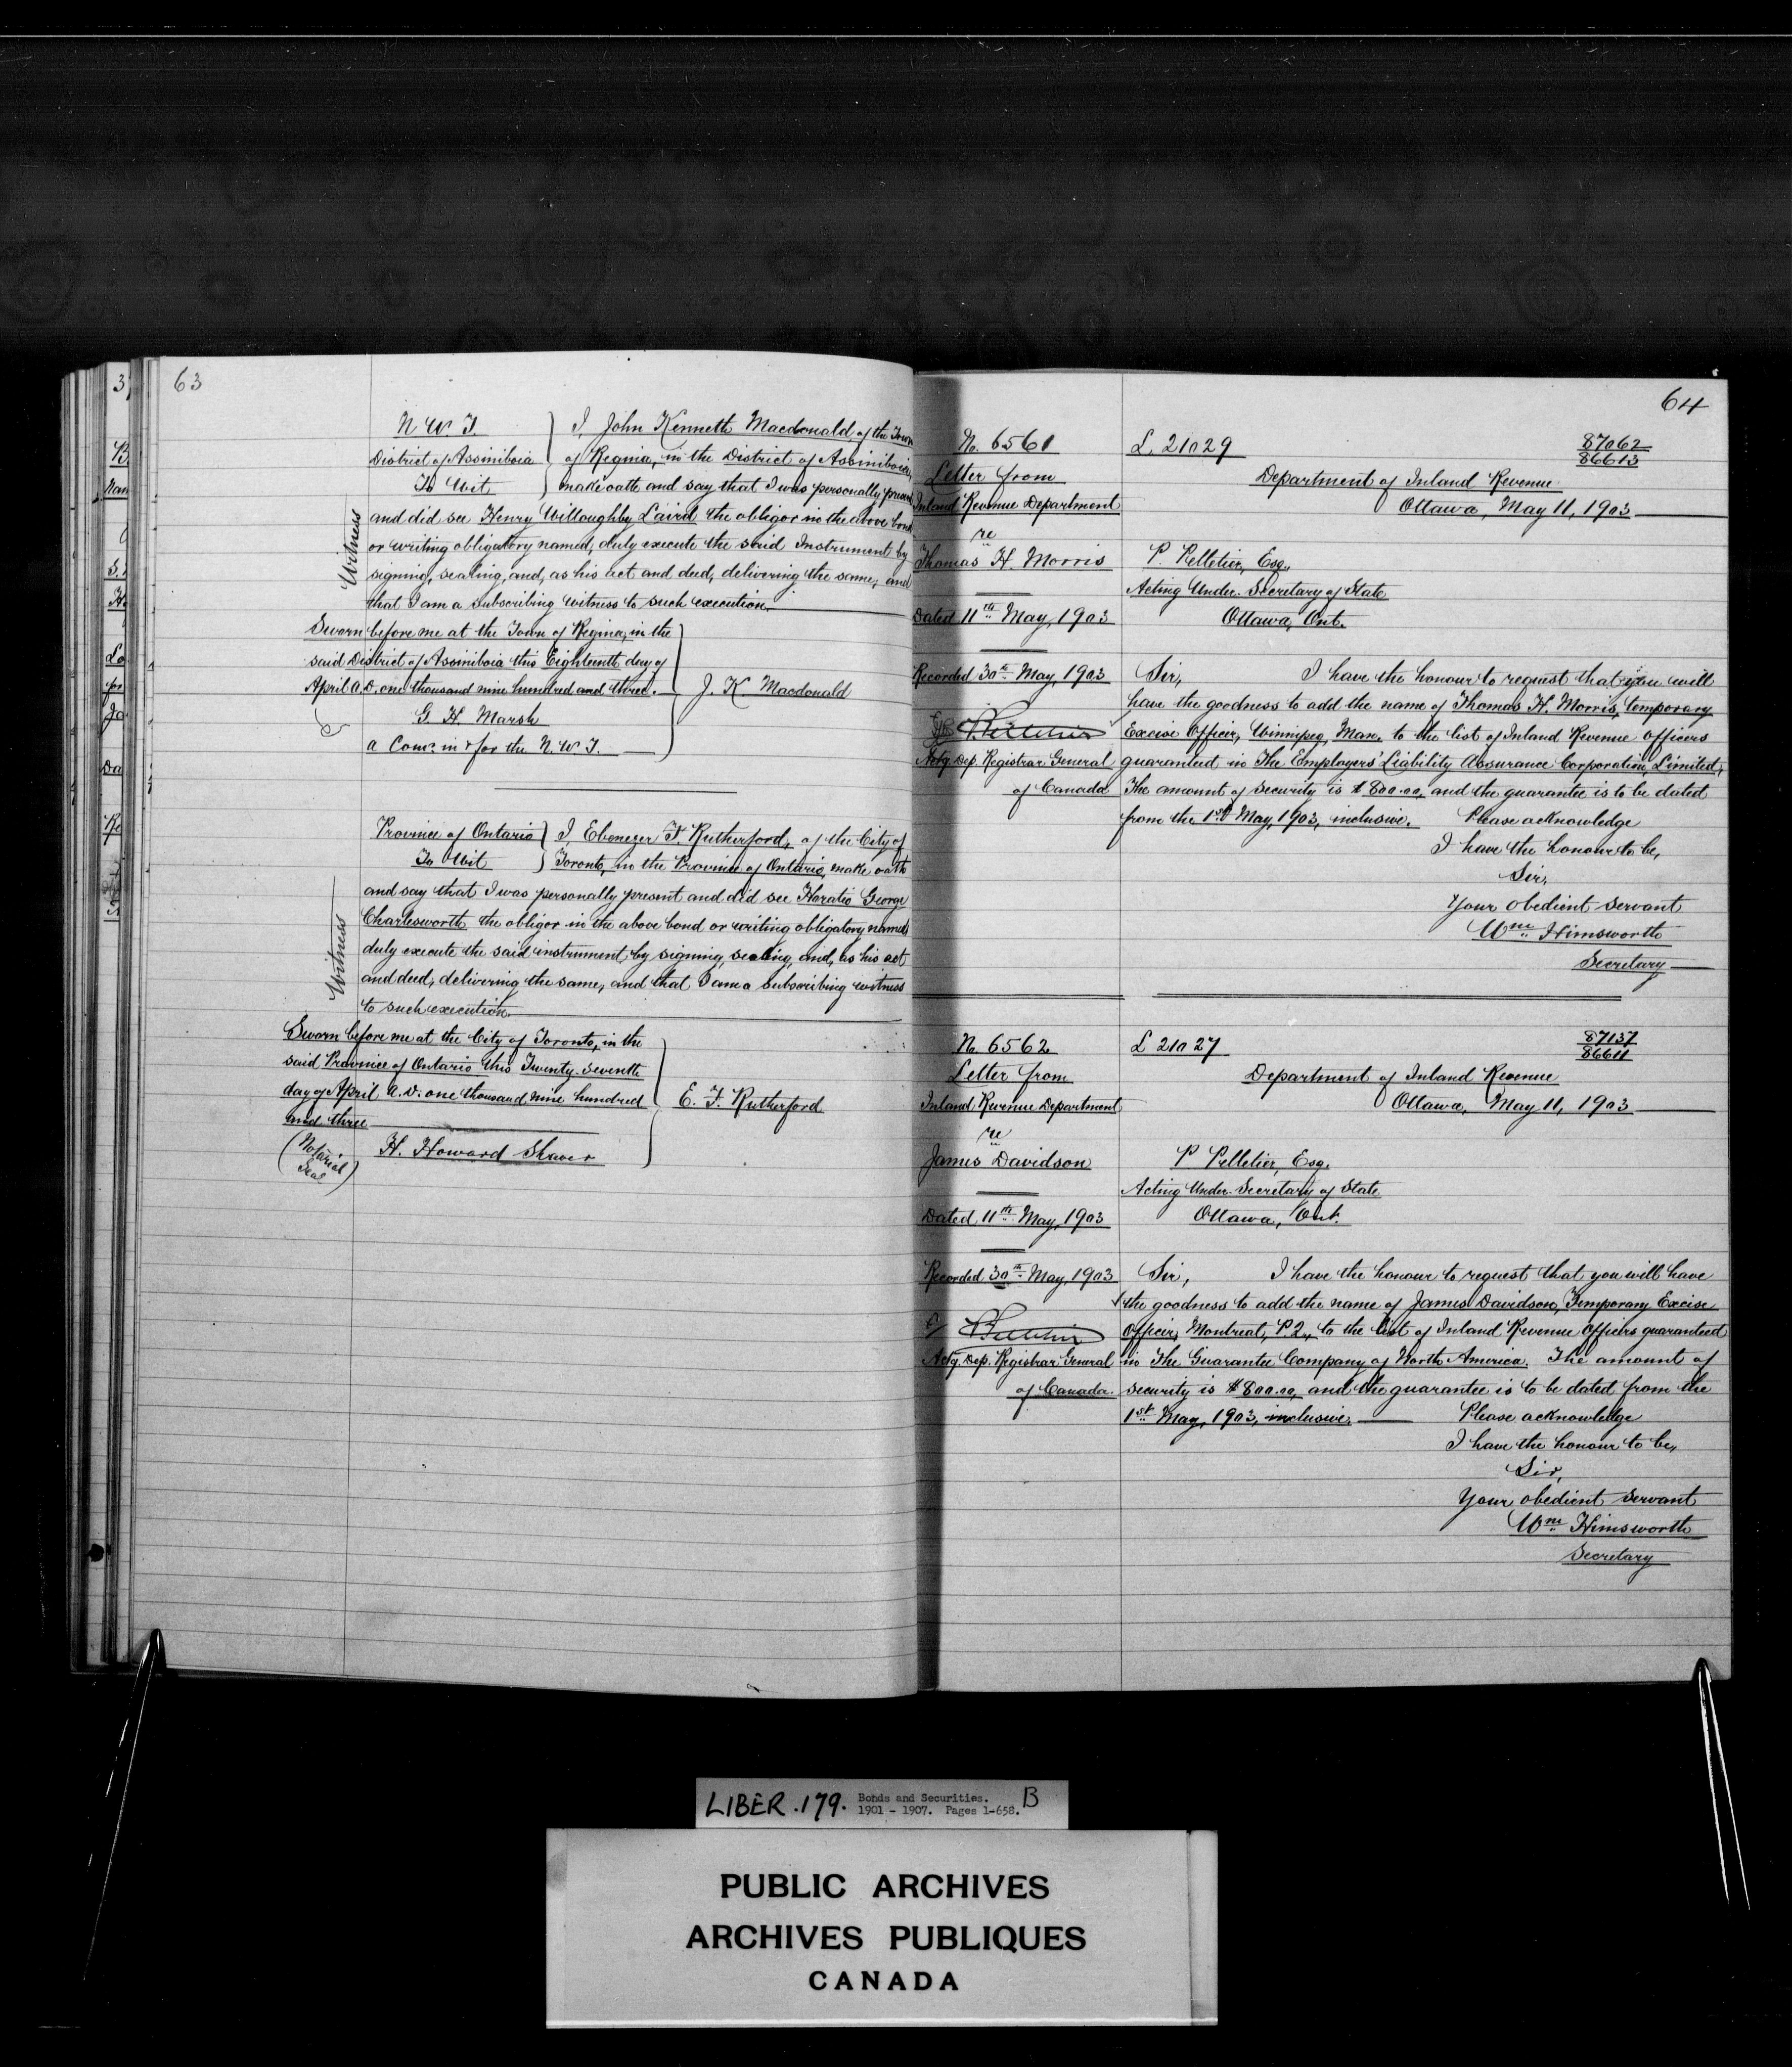 63
N. W. T.
District of Assiniboia
To Wit
I, John Kenneth Macdonald, of the Town
of Regina, in the District of Assiniboia,
make oath and say that I was personally present
Witness
and did see Henry Willoughby Laird the obligor in the above bond
or writing obligatory named, duly execute the said Instrument by
signing, sealing, and, as his act and deed, delivering the same, and
that I am a subscribing witness to such execution.
Sworn before me at the Town of Regina, in the
said District of Assiniboia this Eighteenth day of
April A.D. one thousand nine hundred and three.
J. K. Macdonald
G. H. Marsh
a Comr. in & for the N. W. T.
Province of Ontario
To Wit
I, Ebenezer F. Rutherford, of the City of
Toronto, in the Province of Ontario, make oath
and say that I was personally present and did see Horatio George
Charlesworth the obligor in the above bond or writing obligatory named
Witness
duly execute the said instrument by signing, sealing, and, as his act
and deed, delivering the same, and that I am a subscribing witness
to such execution.
Sworn before me at the City of Toronto, in the
said Province of Ontario this Twenty-seventh
day of April A.D. one thousand nine hundred
and three
E. F. Rutherford
(Notarial
Seal)
H. Howard Shaver
64
No. 6561
Letter from
Inland Revenue Department
re
Thomas H. Morris
Dated 11th May, 1903
Recorded 30th May, 1903
P Pelletier
Actg. Dep. Registrar General
of Canada
L 21029
87062
86613
Department of Inland Revenue
Ottawa, May 11, 1903
P. Pelletier, Esq.,
Acting Under-Secretary of State
Ottawa, Ont.
Sir, I have the honour to request that you will
have the goodness to add the name of Thomas H. Morris, Temporary
Excise Officer, Winnipeg, Man. to the list of Inland Revenue Officers
guaranteed in The Employers' Liability Assurance Corporation, Limited,
The amount of security is $800.00, and the guarantee is to be dated
from the 1st May, 1903, inclusive. Please acknowledge
I have the honour to be,
Sir,
Your obedient servant
Wm Himsworth
Secretary
No. 6562
Letter from
Inland Revenue Department
re
James Davidson
Dated 11th May, 1903
Recorded 30th May, 1903
P Pelletier
Actg. Dep. Registrar General
of Canada.
L 21027
87137
86611
Department of Inland Revenue
Ottawa, May 11, 1903
P Pelletier, Esq.
Acting Under-Secretary of State
Ottawa, Ont.
Sir, I have the honour to request that you will have
the goodness to add the name of James Davidson, Temporary Excise
Officer, Montreal, P.Q., to the list of Inland Revenue Officers guaranteed
in The Guarantee Company of North America. The amount of
security is $800.00, and the guarantee is to be dated from the
1st May, 1903, inclusive. Please acknowledge
I have the honour to be,
Sir,
Your obedient servant
Wm Himsworth
Secretary
LIBER .179. Bonds and Securities. B
1901 - 1907. Pages 1-658.
PUBLIC ARCHIVES
ARCHIVES PUBLIQUES
CANADA